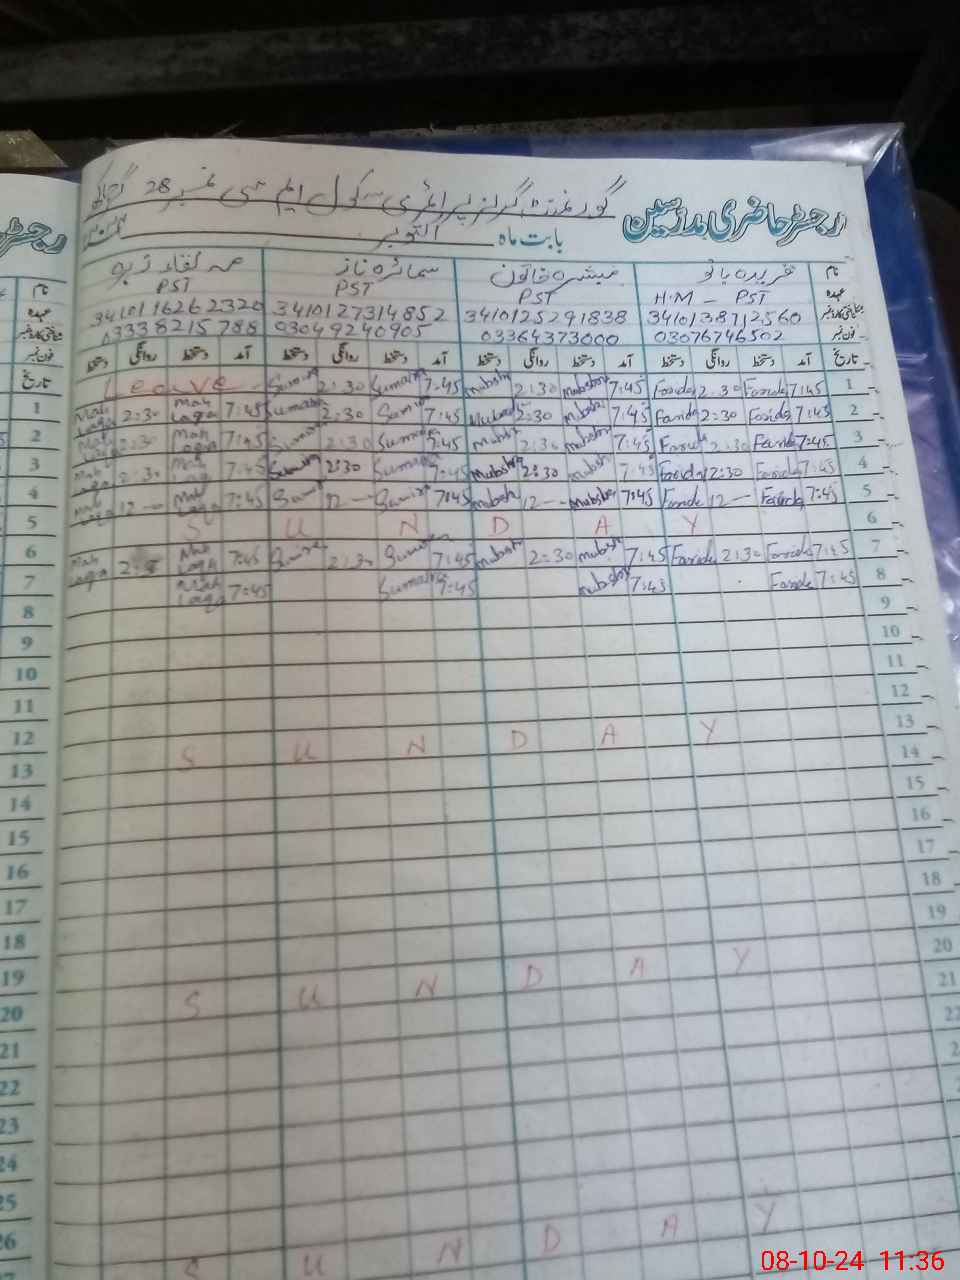 رجسٹر حاضری مدرسین گورنمنٹ گرلز پرائمری سکول ایم سی نمبر 28
بابت ماہ اکتوبر
نام فریدہ بانو مبشرہ خاتون سمائرہ ناز
عہدہ H.M - PST PST PST PST
شناختی کارڈ نمبر 3410138712560 3410125291838 3410127314852 3410116262320
فون نمبر 03076746502 03364373000 03049240905 03338215788
تاریخ آمد دستخط روانگی دستخط آمد دستخط روانگی دستخط آمد دستخط روانگی دستخط آمد دستخط روانگی دستخط
1 7:45 Farida 2:30 Farida 7:45 Mubshra 2:30 Mubshra 7:45 Sumaira 2:30 Sumaira Leave
2 7:45 Farida 2:30 Farida 7:45 Mubshra 2:30 Mubshra 7:45 Sumaira 2:30 Sumaira 7:45 Mah Laqa 2:30 Mah Laqa
3 7:45 Farida 2:30 Farida 7:45 Mubsh 2:30 Mubsh 7:45 Sumaira 2:30 Sumaira 7:45 Mah Laqa 2:30 Mah Laqa
4 7:45 Farida 2:30 Farida 7:45 Mubsh 2:30 Mubshra 7:45 Sumaira 2:30 Sumaira 7:45 Mah Laqa 2:30 Mah Laqa
5 7:45 Farida 12 — Farida 7:45 Mubshra 12 — Mubsh 7:45 Sumaira 12 — Sumaira 7:45 Mah Laqa 12 — Mah Laqa
6 S U N D A Y
7 7:45 Farida 2:30 Farida 7:45 Mubsh 2:30 Mubsh 7:45 Sumaira 2:30 Sumaira 7:45 Mah Laqa Mah Laqa
8 7:45 Farida 7:45 Mubshra 7:45 Sumaira 7:45 Mah Laqa
9
10
11
12
13 S U N D A Y
14
15
16
17
18
19
20 S U N D A Y
21
22
S U N D A Y
رجسٹر
نام
عہدہ
فون نمبر
تاریخ
1
2
3
4
5
6
7
8
9
10
11
12
13
14
15
16
17
18
19
20
21
22
23
24
25
26
08-10-24 11:36